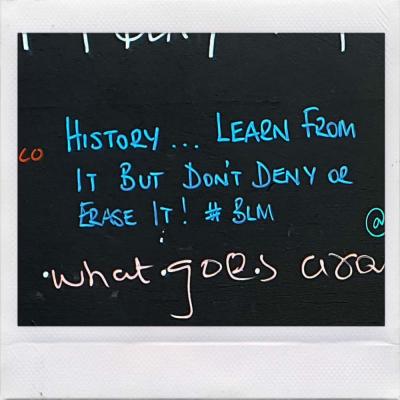 CO
HISTORY... LEARN FROM
IT BUT DON'T DENY OR
ERASE IT! #BLM
@
.what.goes